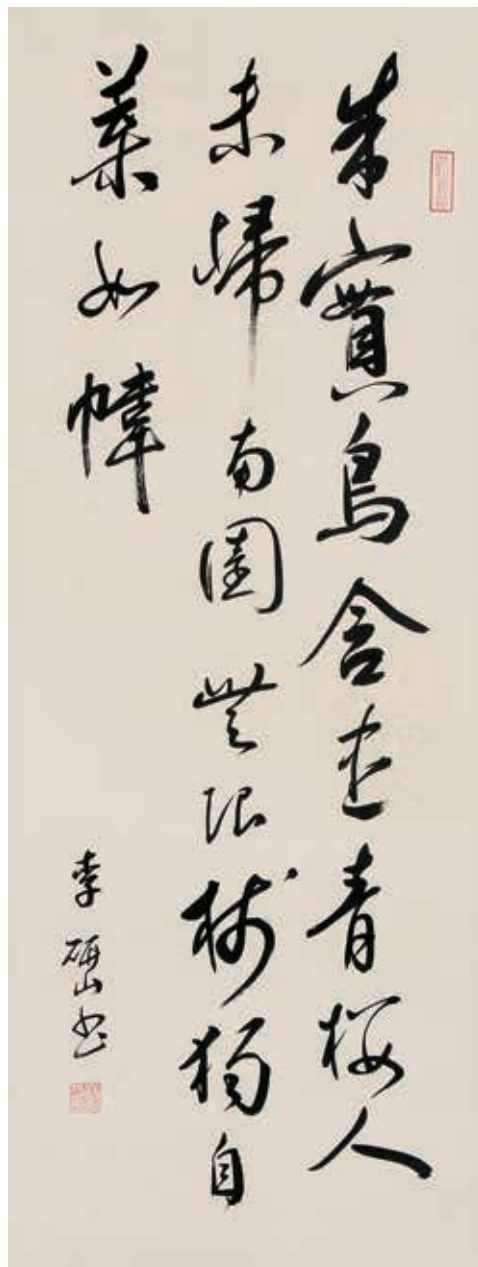 朱實鳥含盡青樓人
未歸南園無限樹獨自
葉如幃
李研山书